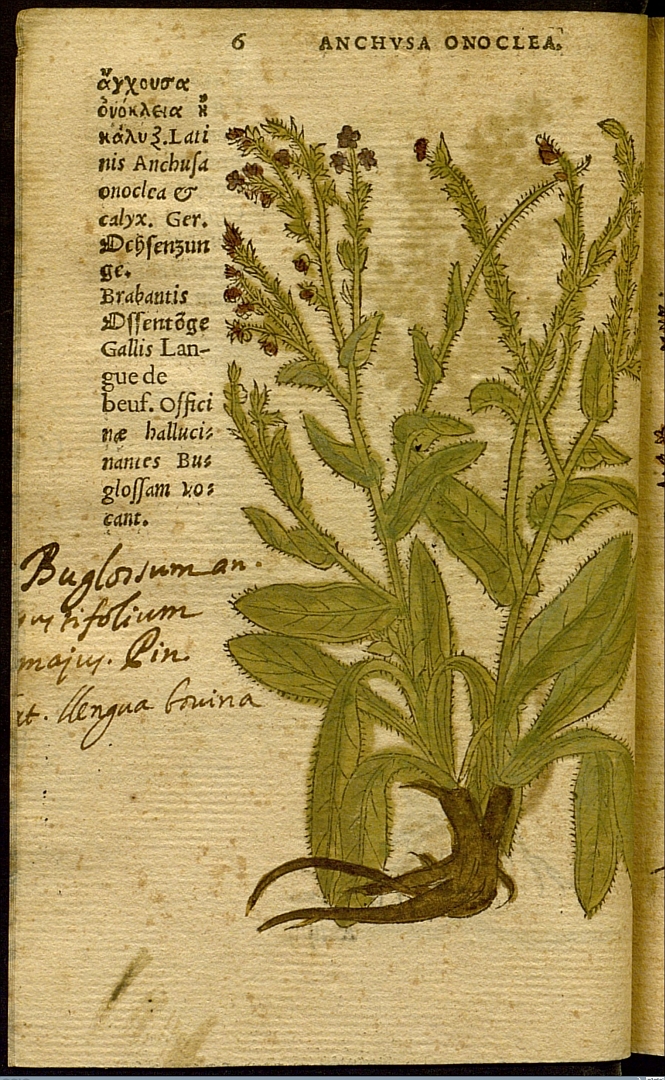 6 ANCHVSA ONOCLEA.
ἄγχουσα
ὀνόκλεια ἢ
κάλυξ. Lati
nis Anchuſa
onoclea &
calyx. Ger.
Ochſenzun
ge.
Brabantis
Oſſentõge
Gallis Lan-
gue de
beuf. Offici
næ halluci⸗
nantes Bu⸗
gloſſam vo⸗
cant.
Buglossum an.
tifolium
majus. Pin.
llengua bovina